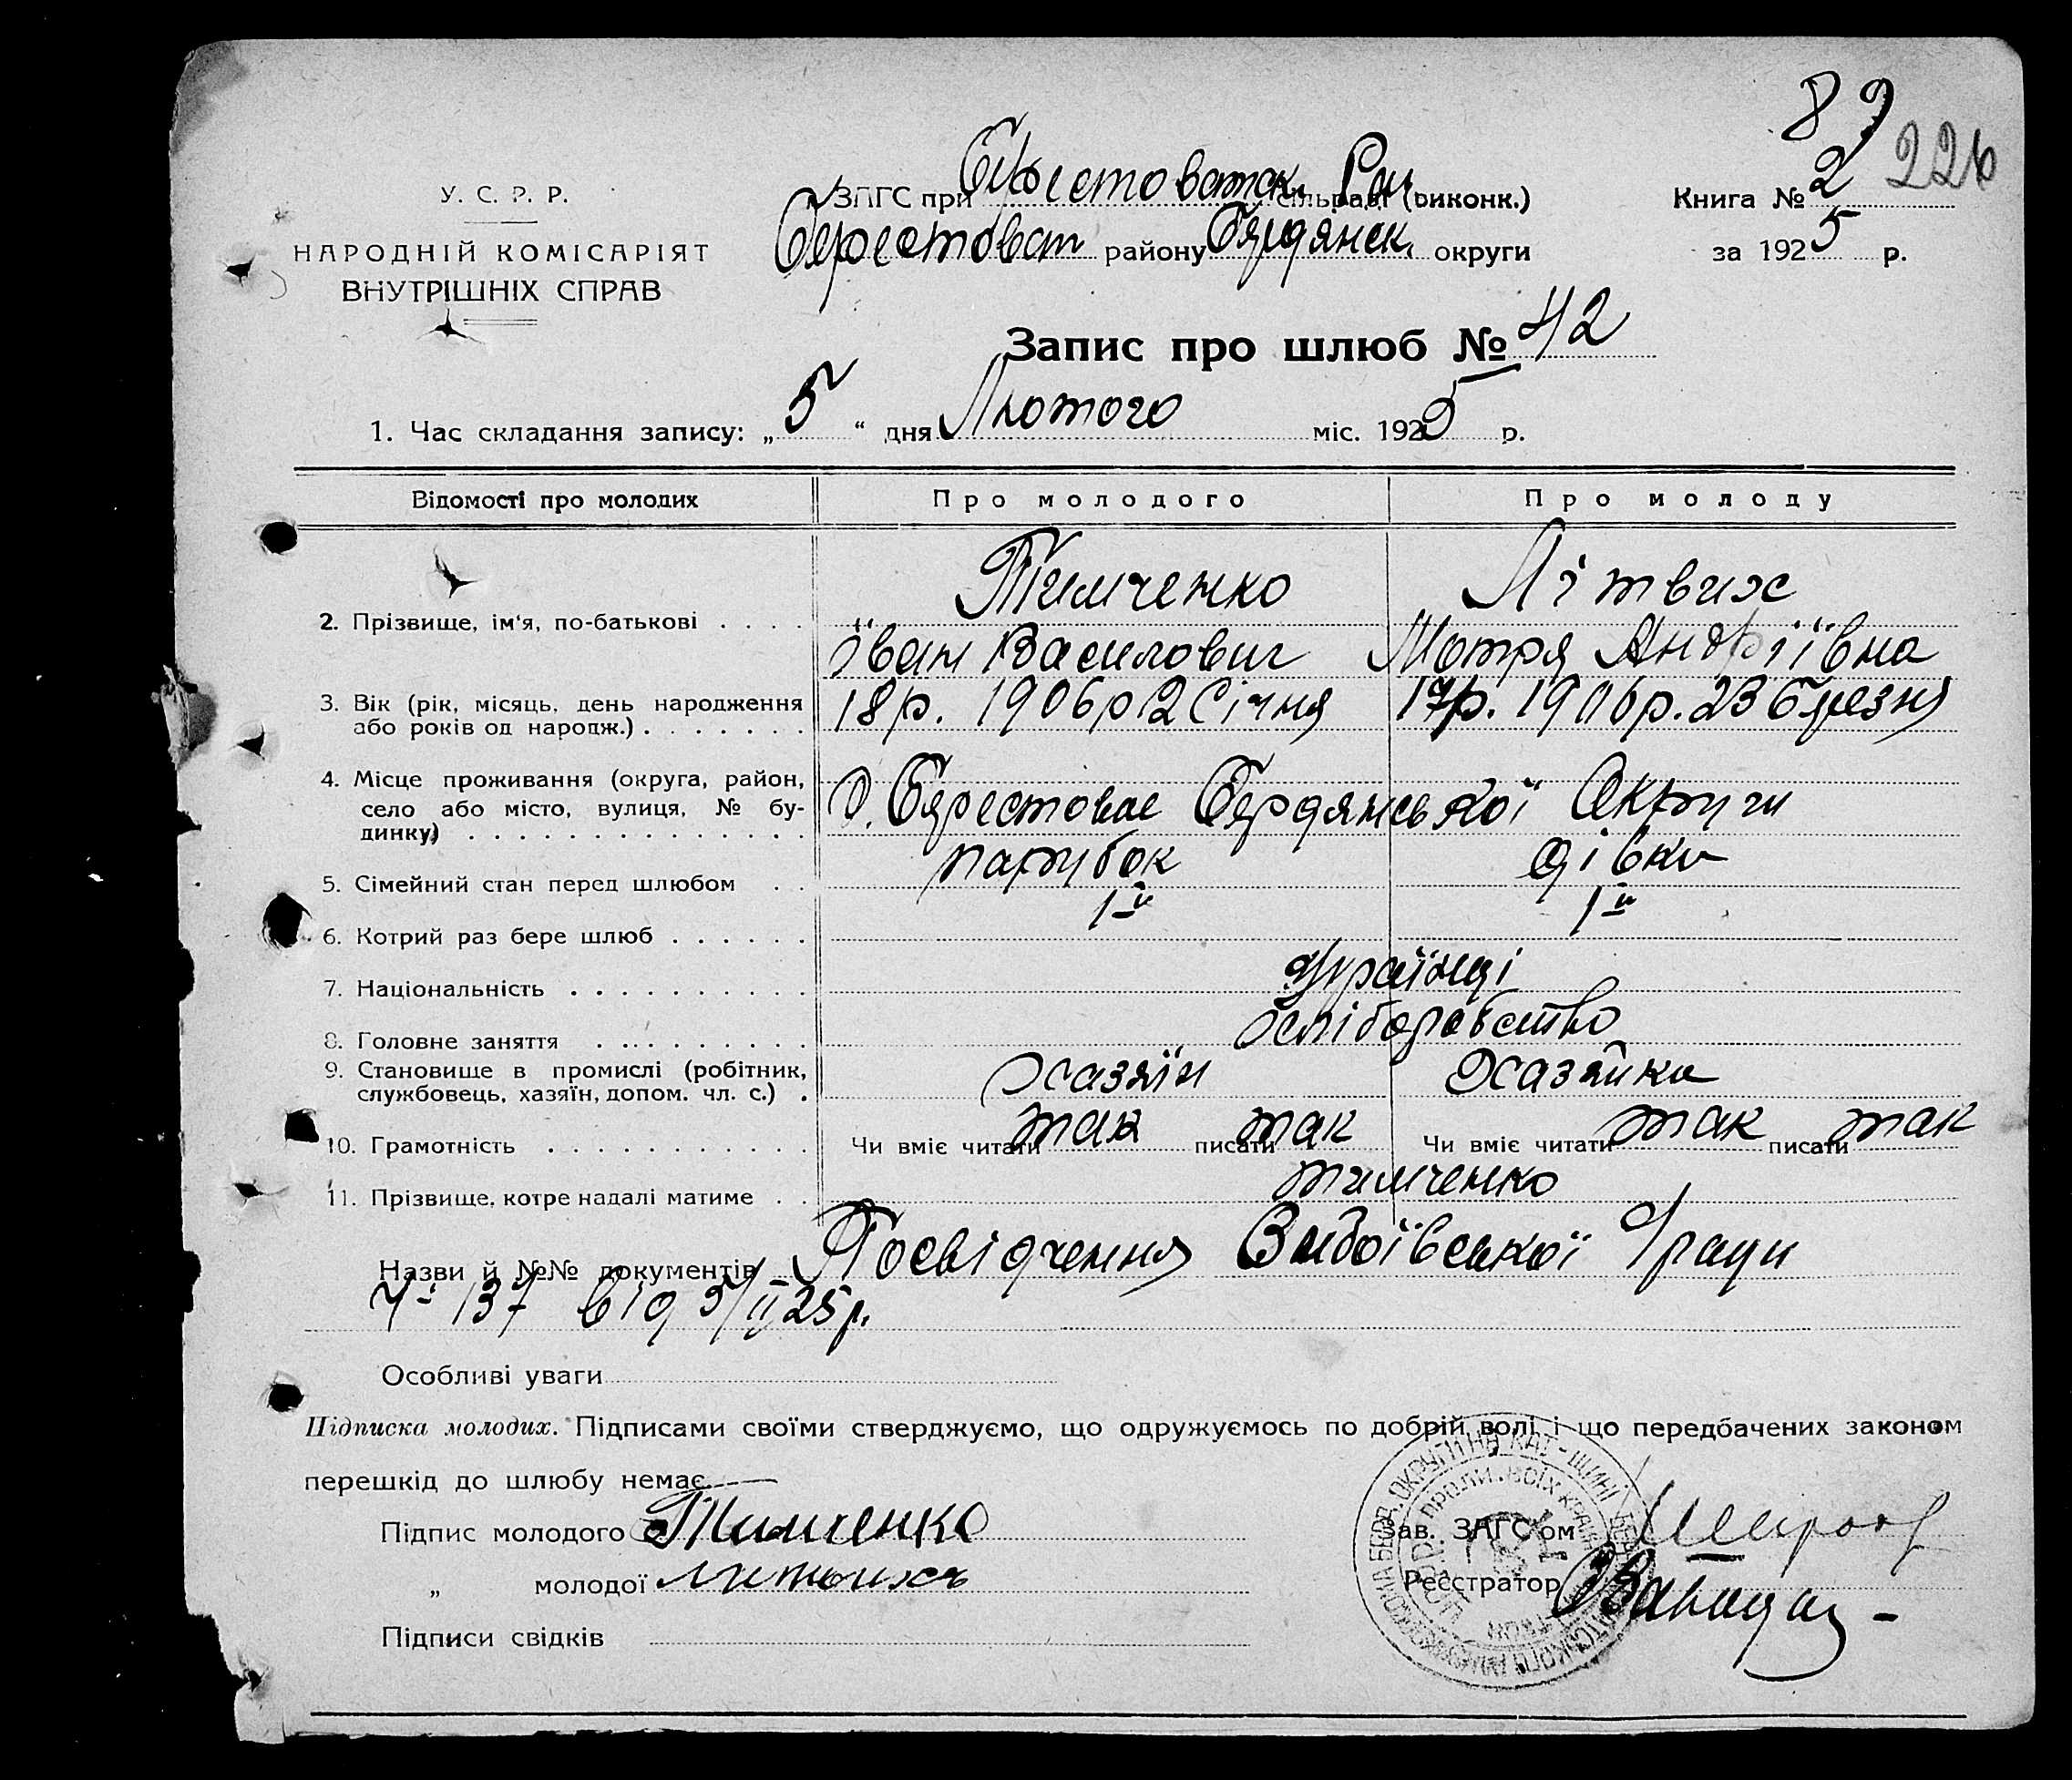 89
226
У. С. Р. Р.
НАРОДНІЙ КОМІСАРІЯТ
ВНУТРІШНІХ СПРАВ
ЗАГС при Берестоватск. Рай. сільраді (виконк.)
Берестоват районУ Бердянск. округи
Книга № 2
за 1925 р.
Запис про шлюб № 42
1. Час складання запису: „5“ дня Лютого міс. 1925 р.
Відомості про молодих Про молодого Про молоду
2. Прізвище, ім'я, по-батькові . . . . Тимченко Літвих
Іван Василович Мотря Андріївна
3. Вік (рік, місяць, день народження або років од народж.) . . . . . . . 18р. 1906р 2 Січня 17р. 1906р. 23 Березня
4. Місце проживання (округа, район, село або місто, вулиця, № будинку) . . . . . . . . . . . . . . С. Берестовае Бердянської Округи
5. Сімейний стан перед шлюбом . . парубок дівка
6. Котрий раз бере шлюб . . . . . . 1й 1й
7. Національність . . . . . . . . . . Українці
8. Головне заняття . . . . . . . . . . хліборобство
9. Становище в промислі (робітник, службовець, хазяїн, допом. чл. с.) . хазяїн хазяйка
10. Грамотність . . . . . . . . . . . Чи вміє читати так писати так Чи вміє читати так писати так
11. Прізвище, котре надалі матиме . . тимченко
Назви й №№ документів Посвідчення
137 від 5/II 25р.
Особливі уваги
Підписка молодих. Підписами своїми стверджуємо, що одружуємось по добрій волі і що передбачених законом
перешкід до шлюбу немає.
Підпис молодого Тимченко
„ молодої Литвихъ
Зав. ЗАГС'ом
Реєстратор
Підписи свідків